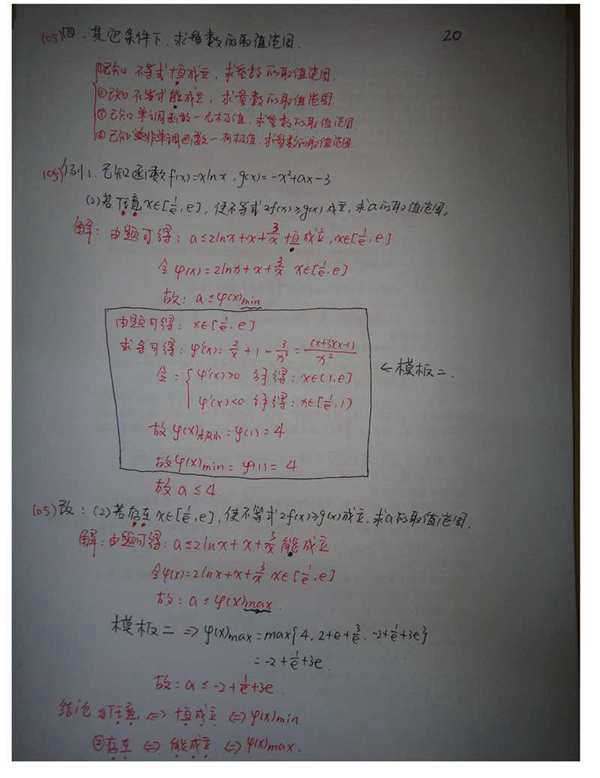 20
(05)四.其他条件下,求参数的取值范围.
①已知不等式恒成立,求参数的取值范围.
②已知不等式能成立,求参数的取值范围.
③已知单调函数—无极值,求参数的取值范围.
④已知非单调函数—有极值,求参数的取值范围.
(05)例1.已知函数f(x)=xlnx,g(x)=-x²+ax-3
(2)若任意x∈[1/e,e],使不等式2f(x)≥g(x)成立,求a的取值范围.
解:由题可得:a≤2lnx+x+3/x恒成立,x∈[1/e,e]
令φ(x)=2lnx+x+3/x x∈[1/e,e]
故:a≤φ(x)min
由题可得:x∈[1/e,e]
求导可得:φ'(x)=2/x+1-3/x²=(x+3)(x-1)/x²
令={φ'(x)>0 得:x∈(1,e]
φ'(x)<0 得:x∈[1/e,1)
←模板二.
故φ(x)极小=φ(1)=4
故φ(x)min=φ(1)=4
故a≤4.
(05)改:(2)若存在x∈[1/e,e],使不等式2f(x)≥g(x)成立,求a的取值范围.
解:由题可得:a≤2lnx+x+3/x能成立
令φ(x)=2lnx+x+3/x x∈[1/e,e]
故:a≤φ(x)max.
模板二=>φ(x)max=max{4,2+e+3/e,-2+1/e+3e}
=-2+1/e+3e
故:a≤-2+1/e+3e.
结论①任意<=>恒成立<=>φ(x)min
②存在<=>能成立<=>φ(x)max.